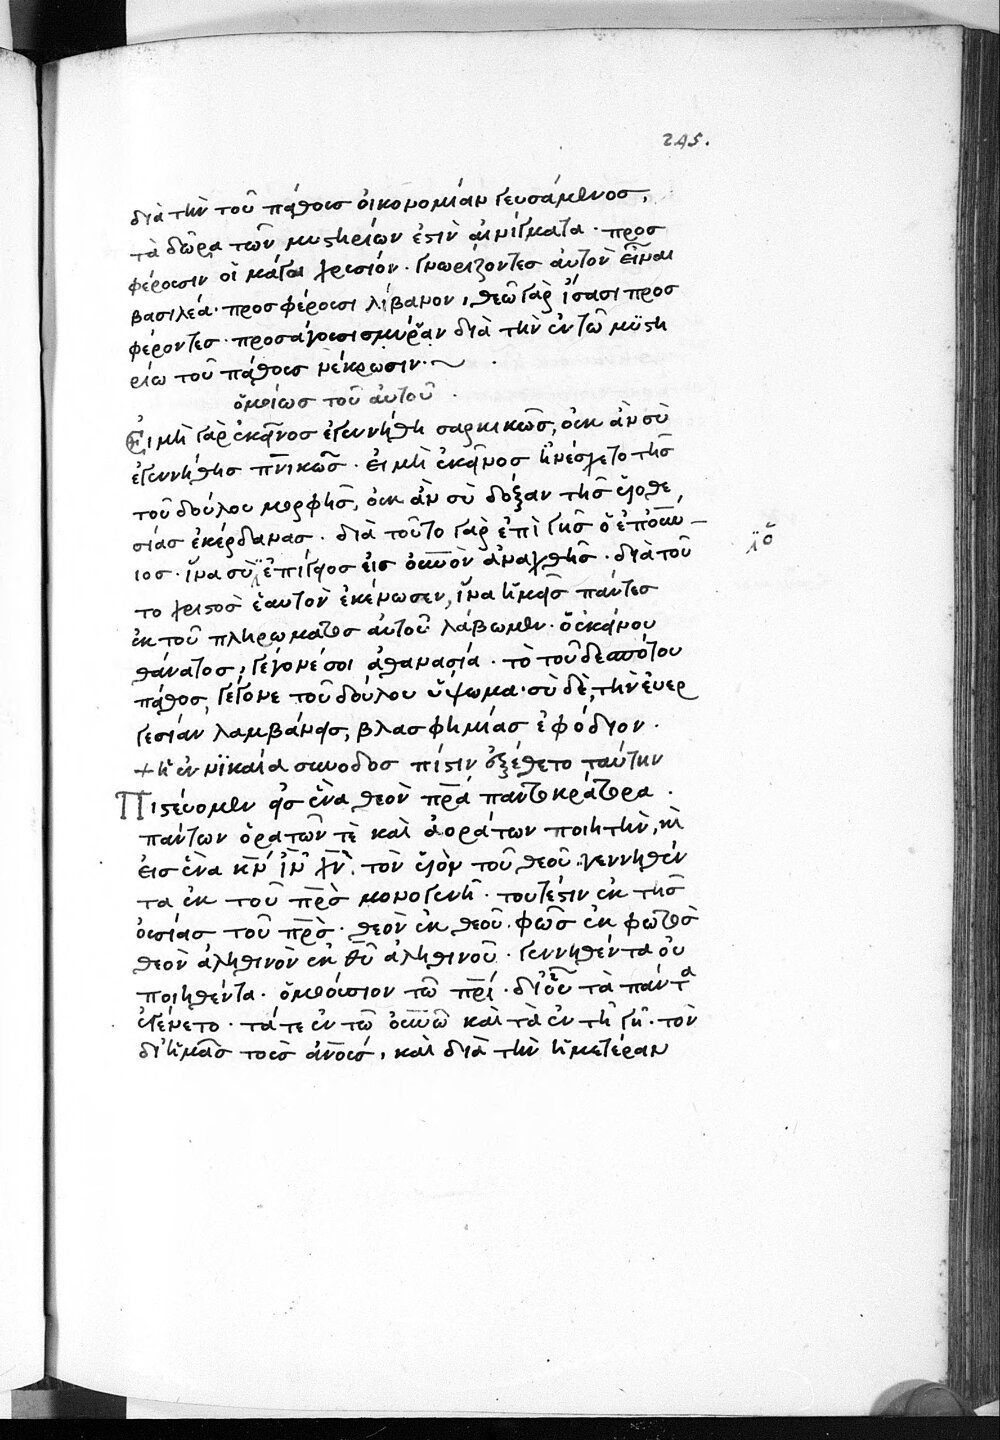 245.
διὰ τὴν τοῦ πάθους οἰκονομίαν γευσάμενος,
τὰ δῶρα τῶν μυστηρίων ἐστὶν αἰνίγματα· προσ
φέρουσιν οἱ μάγοι χρυσίον· γνωρίζοντες αὐτὸν εἶναι
βασιλέα· προσφέρουσι λίβανον, θεῶ γὰρ ἴσασι προσ
φέροντες· προσάγουσι σμύρναν διὰ τὴν ἐν τῶ μυστη
ρίω τοῦ πάθους νέκρωσιν·~
ὁμοίως τοῦ αὐτοῦ.
Εἰ μὴ γὰρ ἐκεῖνος ἐγεννήθη σαρκικῶς, οὐκ ἂν σὺ
ἐγεννήθης πνικῶς· εἰ μὴ ἐκεῖνος ἠνέσχετο τῆς
τοῦ δούλου μορφῆς, οὐκ ἂν σὺ δόξαν τῆς ὑϊοθε,
σίας ἐκέρδανας· διὰ τοῦτο γὰρ ἐπὶ γῆς ὁ ἐπουῥ–
ϊὅ
ιος· ἵνα σὺ ἐπίγειος εἰς οὐνὸν ἀναχθῆς· διὰ τοῦ
το χριστὸς ἑαυτὸν ἐκένωσεν, ἵνα ἡμεῖς πάντες
ἐκ τοῦ πληρώματος αὐτοῦ λάβωμεν· ὁ ἐκείνου
θάνατος, γέγονέ σοι ἀθανασία· τὸ τοῦ δεσπότου
πάθος, γέγονε τοῦ δούλου ὕψωμα· σὺ δὲ, τὴν ἐυερ
γεσίαν λαμβάνεις, βλασφημίας ἐφόδιον.
+ ἡ ἐν νϊκαία συνοδος πίστιν ἐξέθετο ταύτην
Πιστέυομεν εἰς ἕνα θεὸν πρα παντοκράτορα.
πάντων ὁρατῶν τὲ καὶ ἀοράτων ποιητὴν, κὶ
ἐις ἕνα κν ιν χν. τὸν ὑϊὸν τοῦ θεοῦ· γεννηθέν
τα ἐκ τοῦ πρς μονογενῆ· τουτέστιν ἐκ τῆς
οὐσίας τοῦ πρς· θεὸν ἐκ θεοῦ. φῶς ἐκ φωτὸς
θεὸν ἀληθινὸν ἐκ θυ ἀληθινοῦ· γεννηθέντα οὐ
ποιηθέντα· ὁμοούσιον τῶ πρί· δι οὗ τὰ πάντα
ἐγένετο· τά τε ἐν τῶ οὐνῶ καὶ τὰ ἐν τῆ γῆ· τὸν
δι ἡμᾶς τοὺς ἀνους, καὶ διὰ τὴν ἡμετέραν